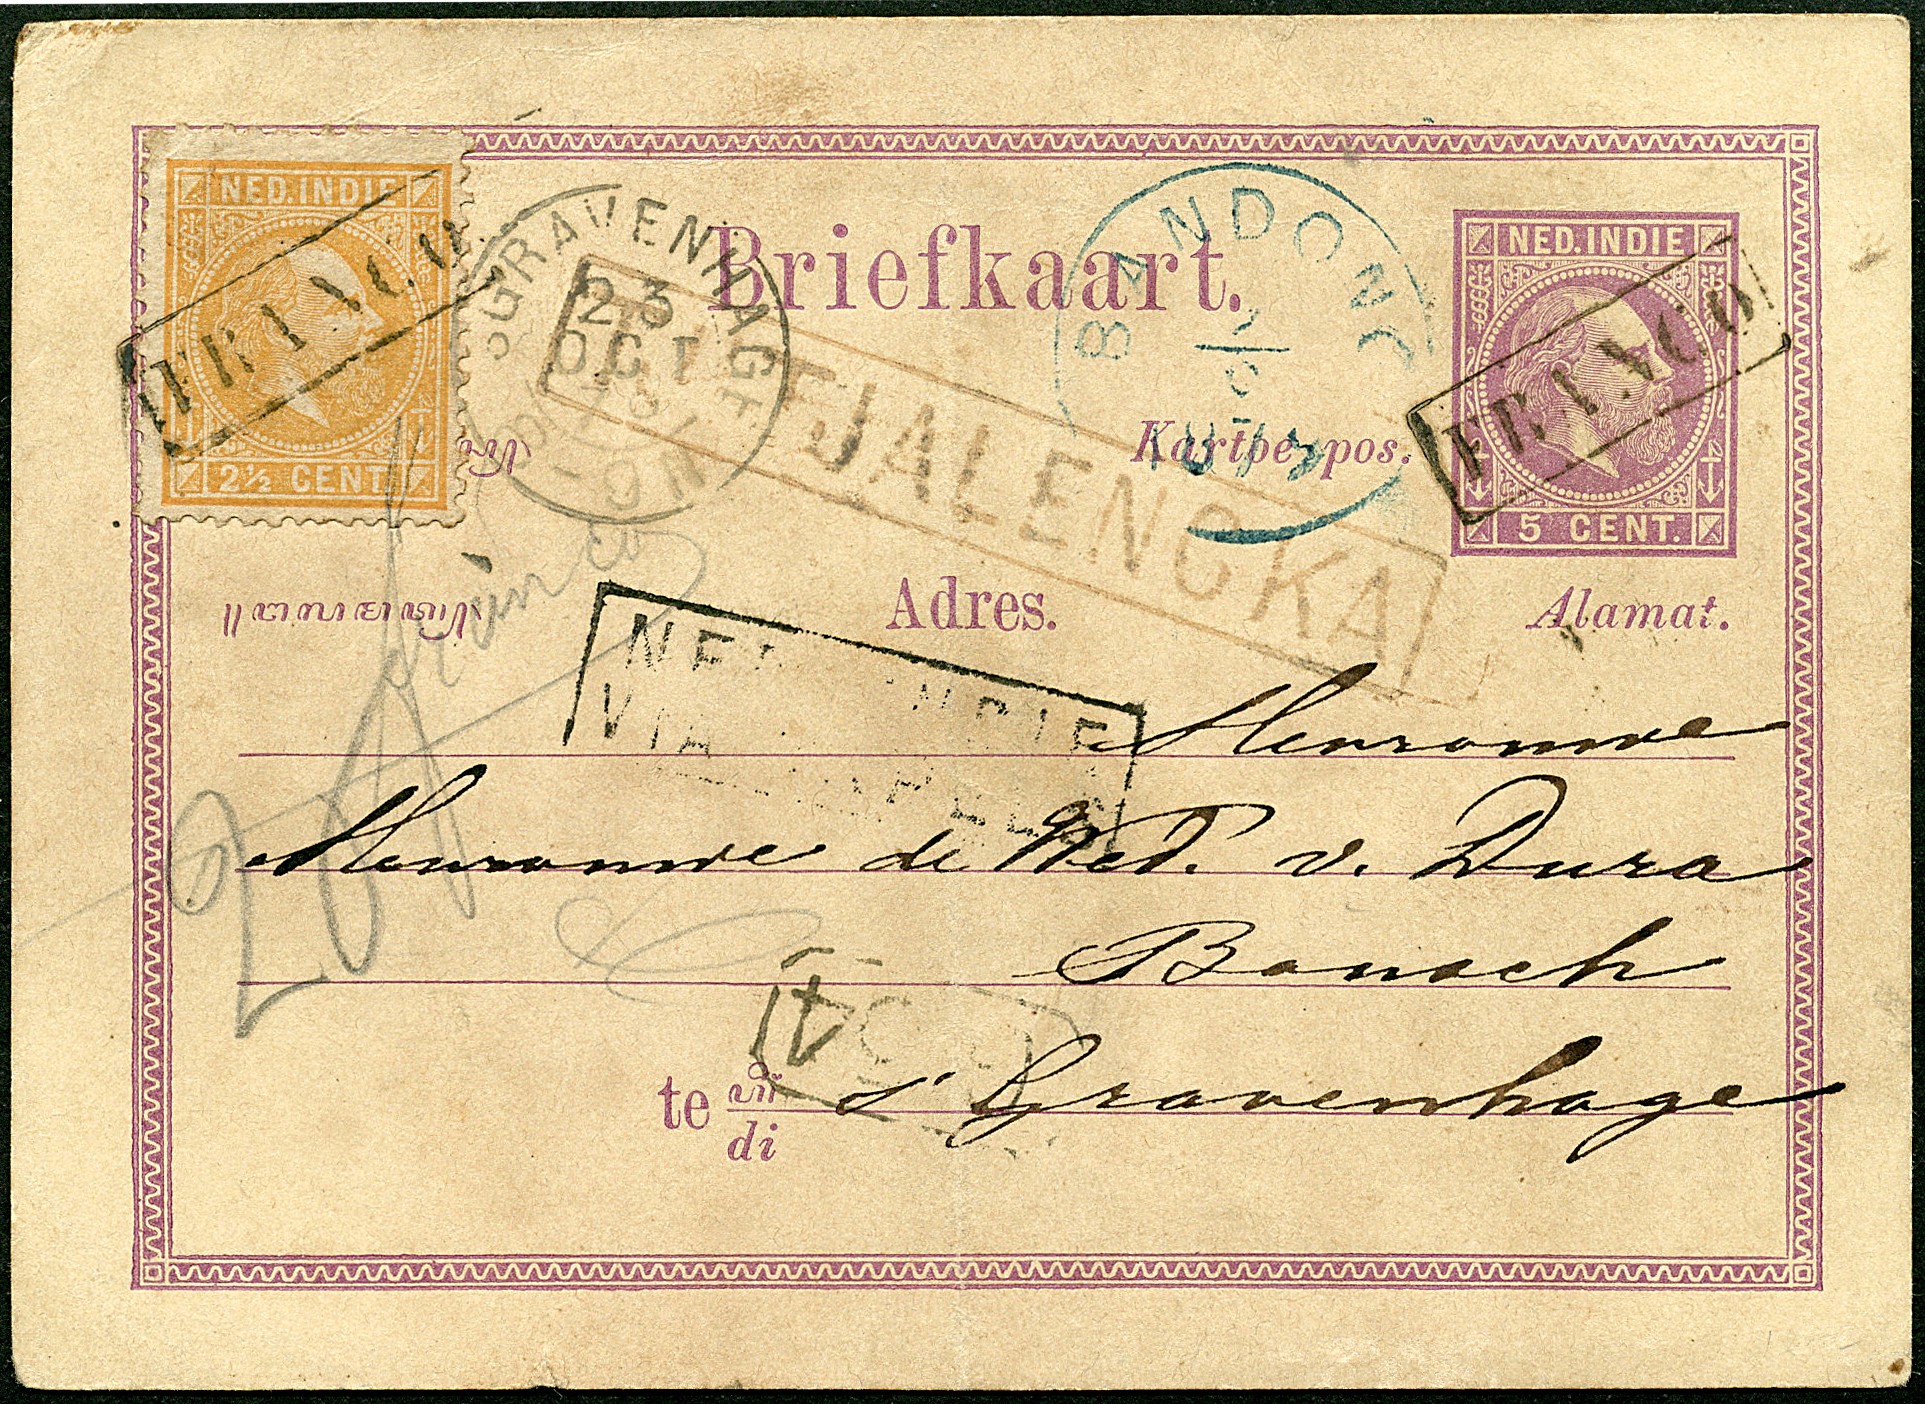 NED.INDIE
2½ CENT
FRANCO
'SGRAVENHAGE
23
OCT
Briefkaart.
BANDONG
NED.INDIE
5 CENT.
FRANCO
TJALENGKA
Kartoe pos.
Adres.
Alamat.
franco
NED. INDIE
VIA
Mevrouwe
Mevrouwe de Wed. v. Dura
te di s'Gravenhage